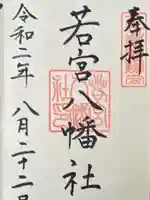 奉拝
若宮八幡社
令和二年 八月二十二日